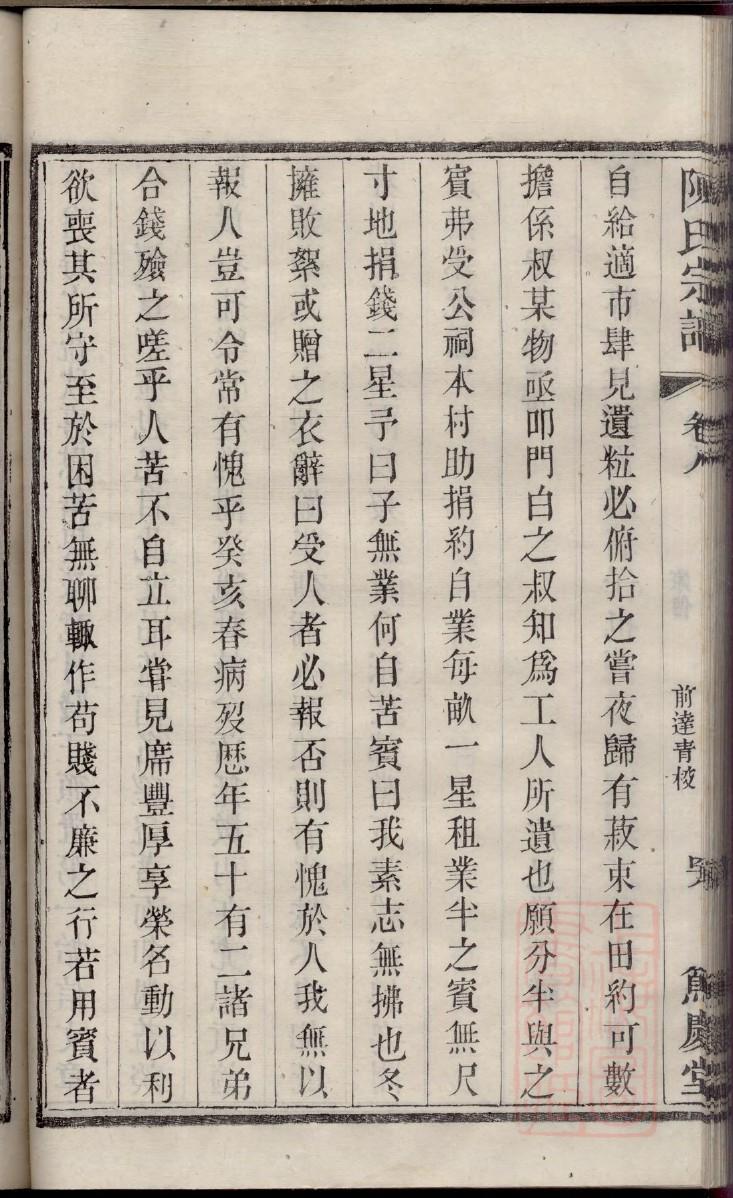 陳氏宗譜
卷八
前達青校
餘慶堂
自給適市肆見遺粒必俯拾之嘗夜歸有菽束在田約可數
擔係叔某物亟叩門白之叔知爲工人所遺也願分半與之
賓弗受公祠本村助捐約自業每畝一星租業半之賓無尺
寸地捐錢二星予曰子無業何自苦賓曰我素志無拂也冬
擁敗絮或贈之衣辭曰受人者必報否則有愧於人我無以
報人豈可令常有愧乎癸亥春病歿歷年五十有二諸兄弟
合錢殮之嗟乎人苦不自立耳甞見席豐厚享榮名動以利
欲喪其所守至於困苦無聊輙作苟賤不廉之行若用賓者